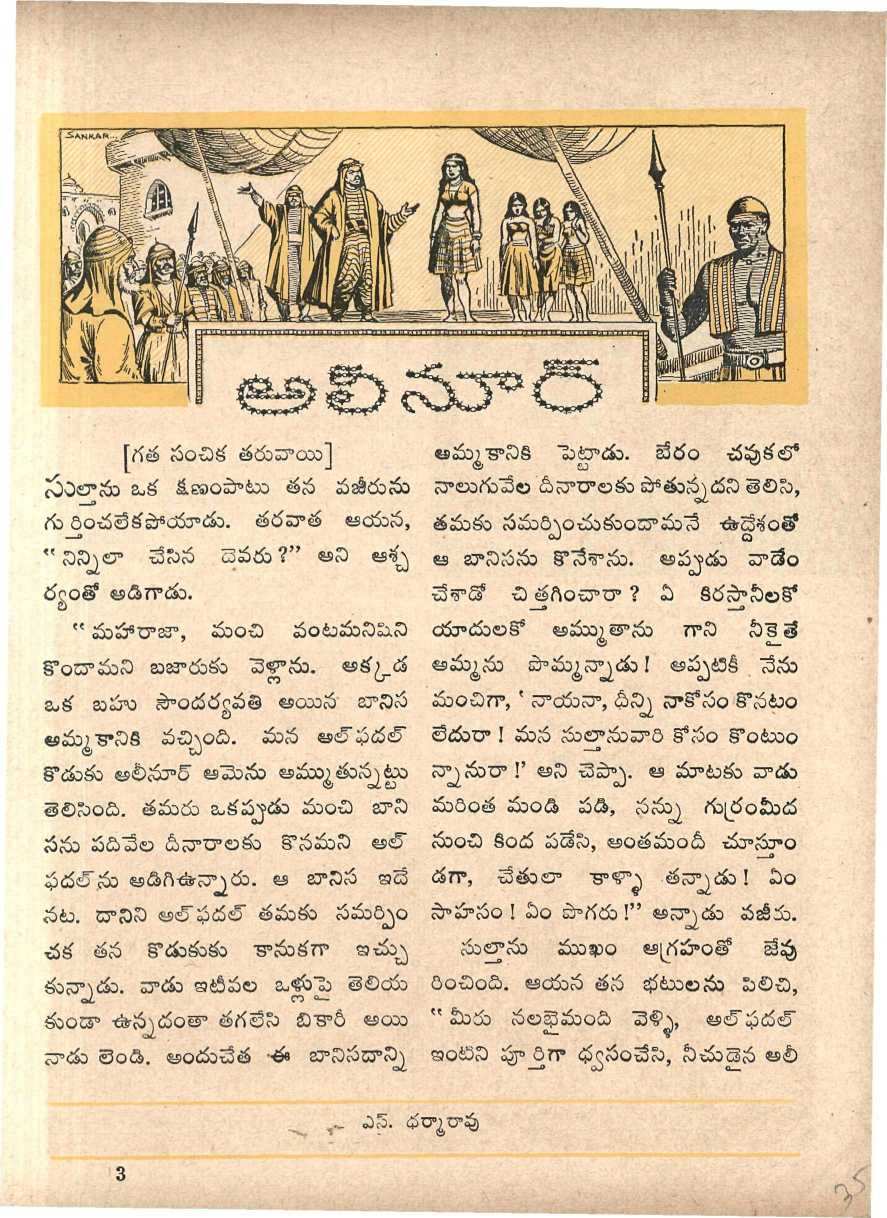 SANKAR...
అలీనూర్
[గత సంచిక తరువాయి]
సుల్తాను ఒక క్షణంపాటు తన వజీరును
గుర్తించలేకపోయాడు. తరవాత ఆయన,
“నిన్నిలా చేసిన దెవరు?” అని ఆశ్చ
ర్యంతో అడిగాడు.
“మహారాజా, మంచి వంటమనిషిని
కొందామని బజారుకు వెళ్లాను. అక్కడ
ఒక బహు సౌందర్యవతి అయిన బానిస
అమ్మకానికి వచ్చింది. మన అల్ ఫదల్
కొడుకు అలీనూర్ ఆమెను అమ్ముతున్నట్టు
తెలిసింది. తమరు ఒకప్పుడు మంచి బాని
సను పదివేల దీనారాలకు కొనమని అల్
ఫదల్ ను అడిగిఉన్నారు. ఆ బానిస ఇదే
నట. దానిని అల్ ఫదల్ తమకు సమర్పిం
చక తన కొడుకుకు కానుకగా ఇచ్చు
కున్నాడు. వాడు ఇటీవల ఒళ్లుపై తెలియ
కుండా ఉన్నదంతా తగలేసి బికారీ అయి
నాడు లెండి. అందుచేత ఈ బానిసదాన్ని
అమ్మకానికి పెట్టాడు. బేరం చవుకలో
నాలుగువేల దీనారాలకు పోతున్నదని తెలిసి,
తమకు సమర్పించుకుందామనే ఉద్దేశంతో
ఆ బానిసను కొనేశాను. అప్పుడు వాడేం
చేశాడో చిత్తగించారా? ఏ కిరస్తానీలకో
యాదులకో అమ్ముతాను గాని నీకైతే
అమ్మను పొమ్మన్నాడు! అప్పటికీ నేను
మంచిగా, ‘నాయనా, దీన్ని నాకోసం కొనటం
లేదురా! మన సుల్తానువారి కోసం కొంటుం
న్నానురా!’ అని చెప్పా. ఆ మాటకు వాడు
మరింత మండి పడి, నన్ను గుర్రంమీద
నుంచి కింద పడేసి, అంతమందీ చూస్తూం
డగా, చేతులా కాళ్ళా తన్నాడు! ఏం
సాహసం! ఏం పొగరు!” అన్నాడు వజీరు.
సుల్తాను ముఖం ఆగ్రహంతో జేవు
రించింది. ఆయన తన భటులను పిలిచి,
“మీరు నలభైమంది వెళ్ళి, అల్ ఫదల్
ఇంటిని పూర్తిగా ధ్వంసంచేసి, నీచుడైన అలీ
ఎస్. ధర్మారావు
3
35